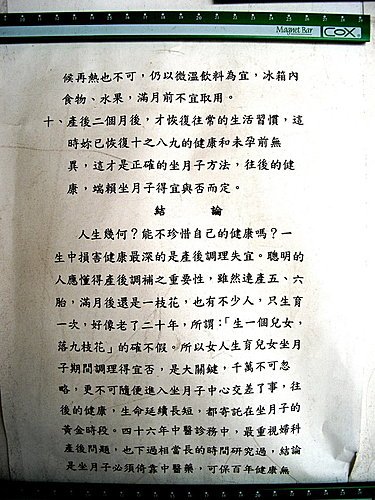 Magnet Bar COX
候再熱也不可，仍以微溫飲料為宜，冰箱內
食物、水果，滿月前不宜取用。
十、產後二個月後，才恢復往常的生活習慣，這
時妳已恢復十之八九的健康和未孕前無
異，這才是正確的坐月子方法，往後的健
康，端賴坐月子得宜與否而定。
結 論
人生幾何？能不珍惜自己的健康嗎？一
生中損害健康最深的是產後調理失宜。聰明的
人應懂得產後調補之重要性，雖然連產五、六
胎，滿月後還是一枝花，也有不少人，只生育
一次，好像老了二十年，所謂：「生一個兒女，
落九枝花」的確不假。所以女人生育兒女坐月
子期間調理得宜否，是大關鍵，千萬不可忽
略，更不可隨便進入坐月子中心交差了事，往
後的健康，生命延續長短，都寄託在坐月子的
黃金時段。四十六年中醫診務中，最重視婦科
產後問題，也下過相當長的時間研究過，結論
是坐月子必須倚靠中醫藥，可保百年健康無